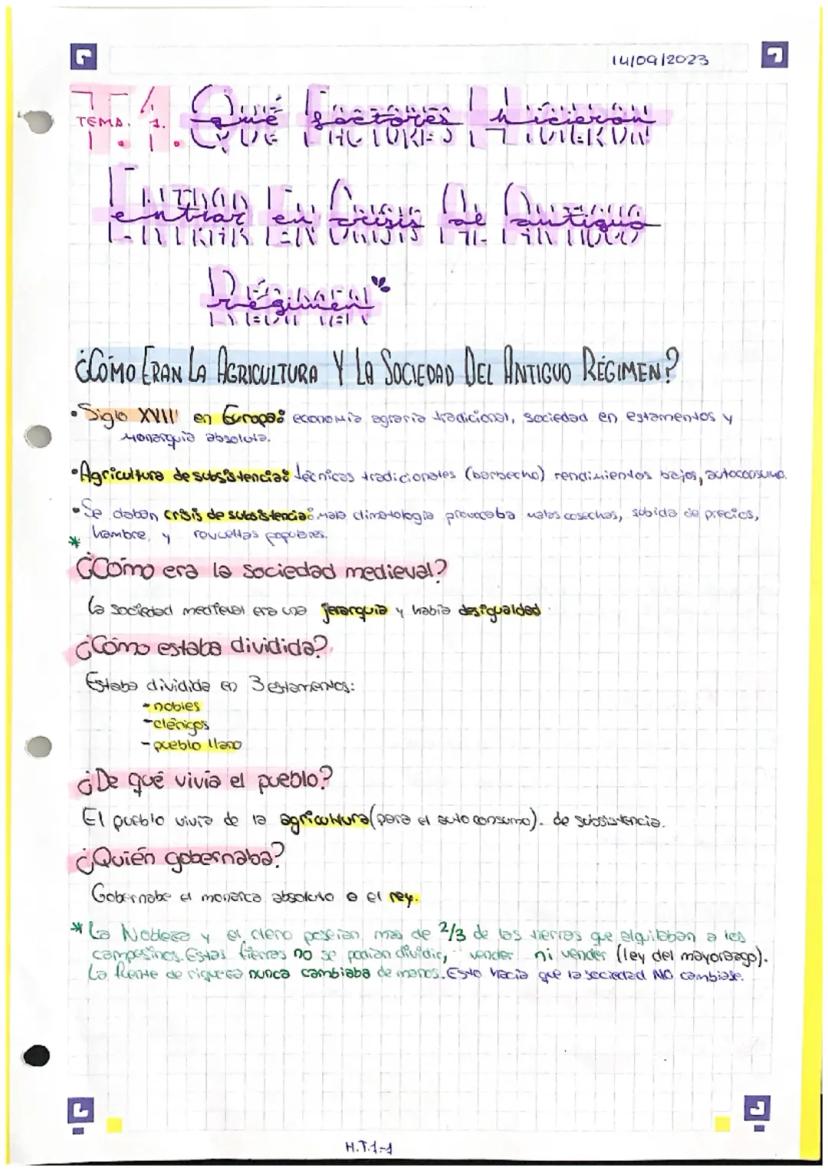 14/09/2023
TEMA. 1.
T.1. Qué factores hicieron
entrar en crisis al antiguo
Régimen
¿CÓMO ERAN LA AGRICULTURA Y LA SOCIEDAD DEL ANTIGUO RÉGIMEN?
•Siglo XVIII en Europa: economía agraria tradicional, sociedad en estamentos y
monarquía absoluta.
•Agricultura de subsistencia: técnicas tradicionales (barbecho) rendimientos bajos, autoconsumo.
•Se daban crisis de subsistencia: mala climatología provocaba malas cosechas, subida de precios,
* hambre, y revueltas populares.
¿Cómo era la sociedad medieval?
La sociedad medieval era una jerarquía y había desigualdad
¿Cómo estaba dividida?
Estaba dividida en 3 estamentos:
-nobles
-clérigos
-pueblo llano
¿De qué vivía el pueblo?
El pueblo vivía de la agricultura (para el auto consumo). de subsistencia.
¿Quién gobernaba?
Gobernaba el monarca absoluto o el rey.
* La Nobleza y el clero poseían mas de 2/3 de las tierras que alquilaban a los
campesinos. Estas tierras no se podían dividir, vender ni vender (ley del mayorazgo).
La fuente de riqueza nunca cambiaba de manos. Esto hacía que la sociedad NO cambiase.
H.T.1-1